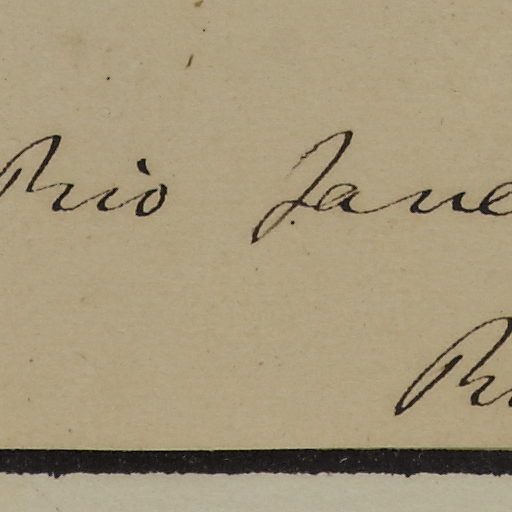 Rio Jane
R